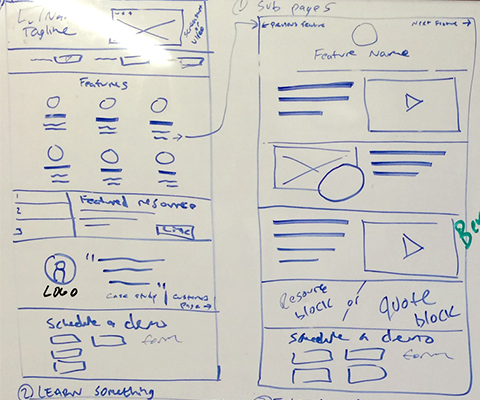 Tagline
Screenshot
video
Features
1
2
3
Featured resource
Link
LOGO
"
"
case study
customers page →
Schedule a demo
form
② LEARN Something
① Sub pages
← Previous Feature
Next Feature →
Feature Name
Resource block or quote block
Schedule a demo
form